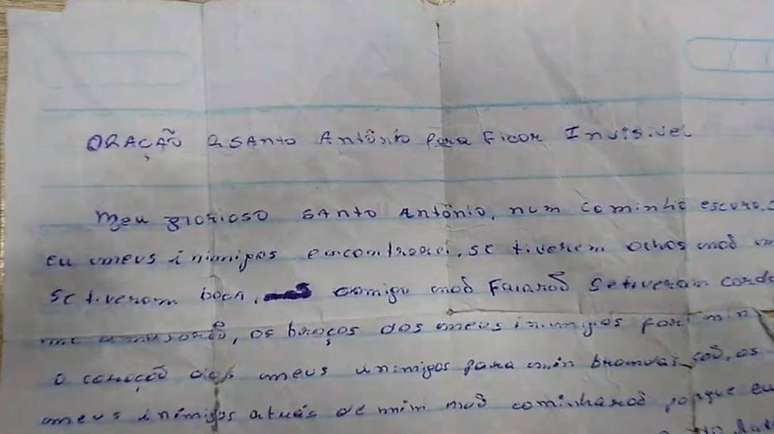 ORAÇÃO a SANto Antônio para Ficar Invisivel
Meu glorioso SANto Antônio, num caminho escuro,
eu meus inimigos encontrarei, se tiverem olhos
se tiverem boca, comigo naõ Falaraõ se tiveram
os braços dos meus inimigos
o coração dos meus inimigos para min
meus inimigos atrás de mim naõ caminharaõ porque eu